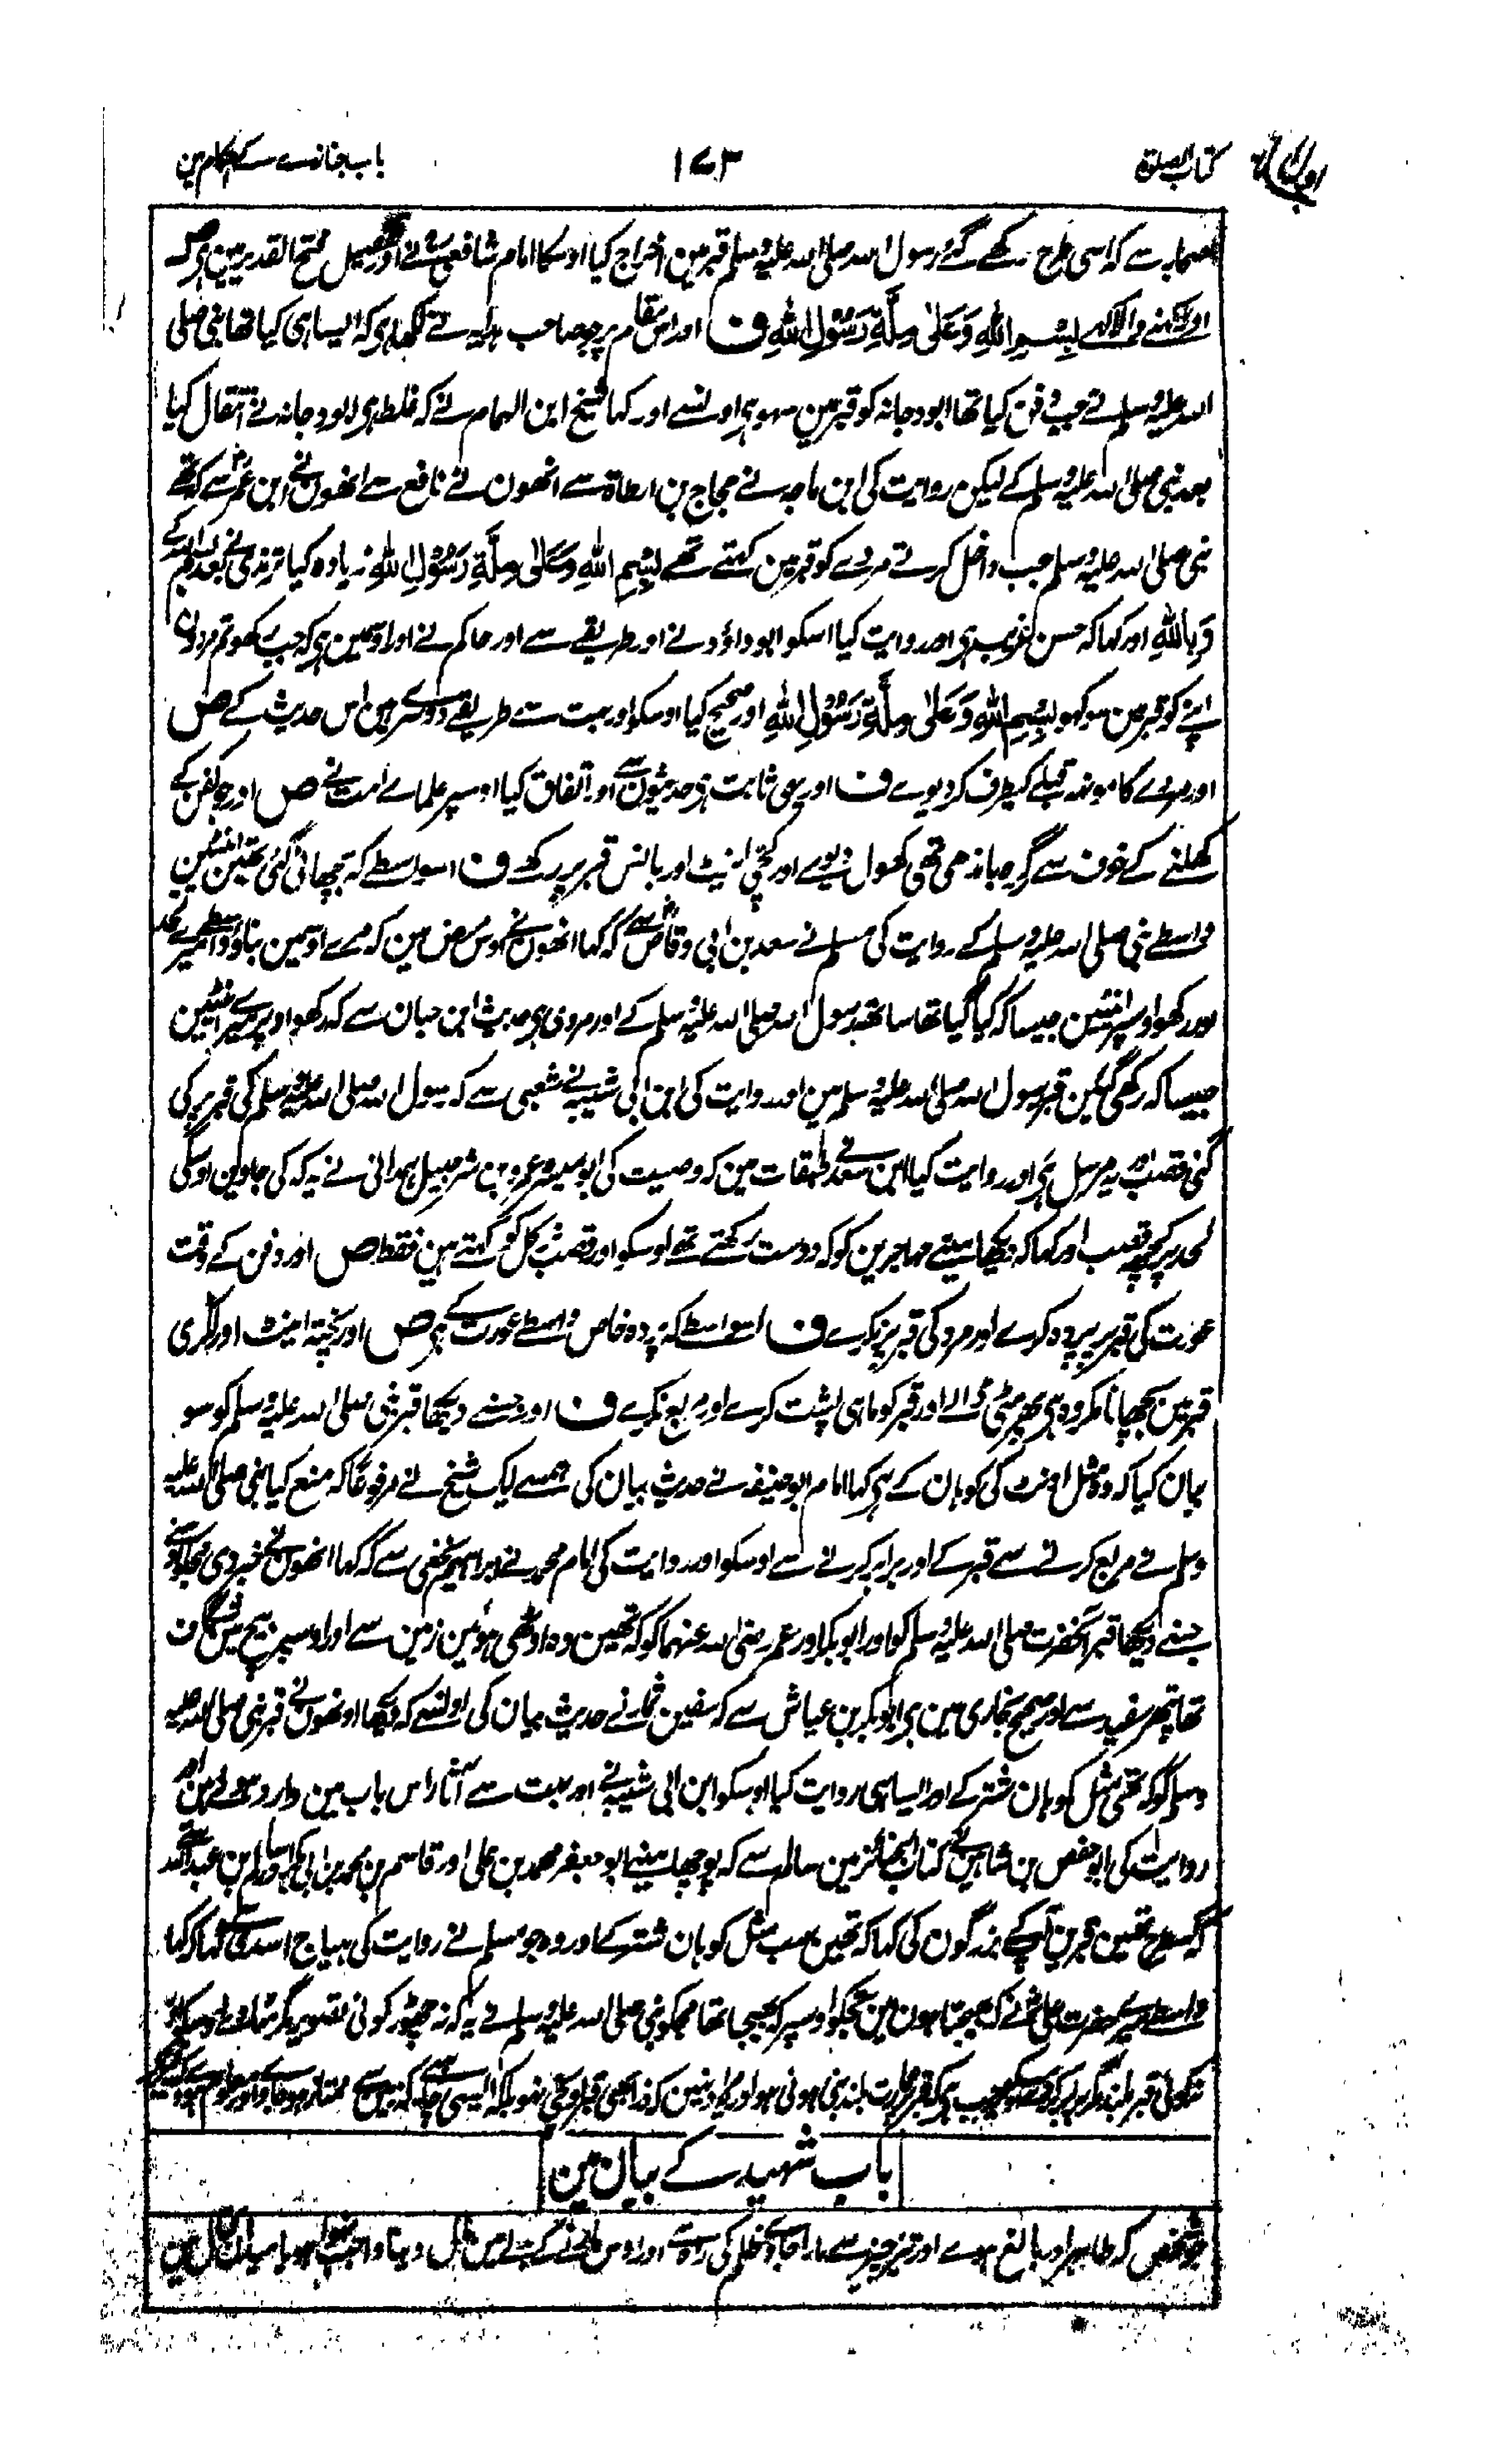 کتاب الصلوة ۱۷۳ باب جنازے کے احکام مین
صحابہ سے کہ اسی طرح رکھے گئے رسول اللہ صلی اللہ علیہ وسلم قبر مین اخراج کیا اوسکا امام شافعیؒ نے اور تفصیل فتح القدیر مین ہی ص
اور رکھنے والا کہے بِسْمِ اللّٰهِ وَعَلٰى مِلَّةِ رَسُوْلِ اللّٰهِ ف اور اس مقام پر جو صاحب ہدایہ نے لکھا ہی کہ ایسا ہی کیا تھا نبی صلی
اللہ علیہ وسلم نے جب دفن کیا تھا ابو دجانہ کو قبر مین سہو ہی اونسے اور کہا شیخ ابن الہمام نے کہ غلط ہی ابو دجانہ نے انتقال کیا
بعد نبی صلی اللہ علیہ وسلم کے لیکن روایت کی ابن ماجہ نے حجاج بن ارطاۃ سے انھون نے نافع سے انھون نے ابن عمرؓ سے کہ تھے
نبی صلی اللہ علیہ وسلم جب داخل کرتے مردے کو قبر مین کہتے تھے بِسْمِ اللّٰهِ وَعَلٰى مِلَّةِ رَسُوْلِ اللّٰهِ زیادہ کیا ترمذی نے بعد بسم اللہ کے
وَبِاللّٰهِ اور کہا کہ حسن غریب ہی اور روایت کیا اسکو ابو داؤد نے اور طریقے سے اور حاکم نے اور اوسمین ہی کہ جب رکھو تم مردون
اپنے کو قبر مین سو کہو بِسْمِ اللّٰهِ وَعَلٰى مِلَّةِ رَسُوْلِ اللّٰهِ اور صحیح کیا اوسکو اور بہت سے طریقے دوسرے ہین اس حدیث کے ص
اور مردے کا مونھ قبلے کیطرف کر دیوے ف اور یہی ثابت ہی حدیثون سے اور اتفاق کیا اوسپر علماے امت نے ص اور جو کفن کے
کھلنے کے خوف سے گرہ باندھی تھی کھول دیوے اور کچی اینٹ اور بانس قبر پر رکھے ف اسواسطے کہ بچھائی گئی تھین اینٹین
واسطے نبی صلی اللہ علیہ وسلم کے روایت کی مسلم نے سعد بن ابی وقاصؓ سے کہ کہا انھون نے اوس مرض مین کہ مرے اوسمین بناؤ واسطے میرے لحد
اور رکھو اوسپر اینٹین جیسا کہ کیا گیا تھا ساتھ رسول اللہ صلی اللہ علیہ وسلم کے اور مروی ہی حدیث ابن حبان سے کہ رکھو اوپر میرے اینٹین
جیسا کہ رکھی گئین قبر رسول اللہ صلی اللہ علیہ وسلم مین اور روایت کی ابن ابی شیبہ نے شعبی سے کہ رسول اللہ صلی اللہ علیہ وسلم کی قبر پر کی
گئی قصب اور یہ مرسل ہی اور روایت کیا ابن سعد نے طبقات مین کہ وصیت کی ابو میسرہ عمرو بن شرحبیل ہمدانی نے یہ کہ کی جاوین اوسکی
لحد پر کچھ قصب اور کہا کہ دیکھا مینے مہاجرین کو کہ دوست رکھتے تھے اوسکو اور قصب کل کو کہتے ہین فقط ص اور دفن کے وقت
عورت کی قبر پر پردہ کرے اور مرد کی قبر پر نکرے ف اسواسطے کہ پردہ خاص واسطے عورت کے ہی ص اور پختہ اینٹ اور لکڑی
قبر مین بچھانا مکروہ ہی پھر مٹی ڈالے اور قبر کو ماہی پشت کرے اور مربع نکرے ف اور جسنے دیکھا قبر نبی صلی اللہ علیہ وسلم کو سو
بیان کیا کہ وہ مثل اونٹ کی کوہان کے ہی کہا امام ابو حنیفہ نے حدیث بیان کی ہمسے ایک شیخ نے مرفوعًا کہ منع کیا نبی صلی اللہ علیہ
وسلم نے مربع کرنے سے قبر کے اور برابر کرنے سے اوسکو اور روایت کی امام محمد نے ابراہیم نخعی سے کہ کہا انھون نے خبر دی مجھکو
جسنے دیکھا قبر آنحضرت صلی اللہ علیہ وسلم کو اور ابو بکر اور عمر رضی اللہ عنہما کو کہ تھین وہ اوٹھی ہوئین زمین سے اور اوسپر
تھا پتھر سفید سے اور صحیح بخاری مین ہی ابوبکر بن عیاش سے کہ سفین تمار نے حدیث بیان کی اونسے کہ دیکھا اونھون نے قبر نبی صلی اللہ علیہ
وسلم کو کہ تھی مثل کوہان شتر کے اور ایسا ہی روایت کیا اوسکو ابن ابی شیبہ نے اور بہت سے آثار اس باب مین وارد ہوئے ہین اور
روایت کی ابو حفص بن شاہین نے کتاب الجنائز مین سالم سے کہ پوچھا مینے ابو جعفر محمد بن علی اور قاسم بن محمد بن ابی بکر اور سالم بن عبد اللہ سے
کہ کسطرح تھین قبرین آپکے بزرگون کی کہا کہ تھین سب مثل کوہان شتر کے اور وہ جو مسلم نے روایت کی ہیاج اسدی سے کہا کہ کہا
واسطے میرے حضرت علیؓ نے کہ بھیجتا ہون مین تجکو اوسپر کہ بھیجا تھا مجکو نبی صلی اللہ علیہ وسلم نے یہ کہ نہ چھوڑ کوئی تصویر مگر مٹا دے اوسکو اور
نہ کوئی قبر بلند مگر برابر کر دے اوسکو
باب شہید کے بیان مین
جو شخص کہ طاہر اور بالغ ہووے اور تیز چیز سے مارا جاوے ظلم کی راہ سے اور اوس مارنے کے بدلے مین مال دینا واجب